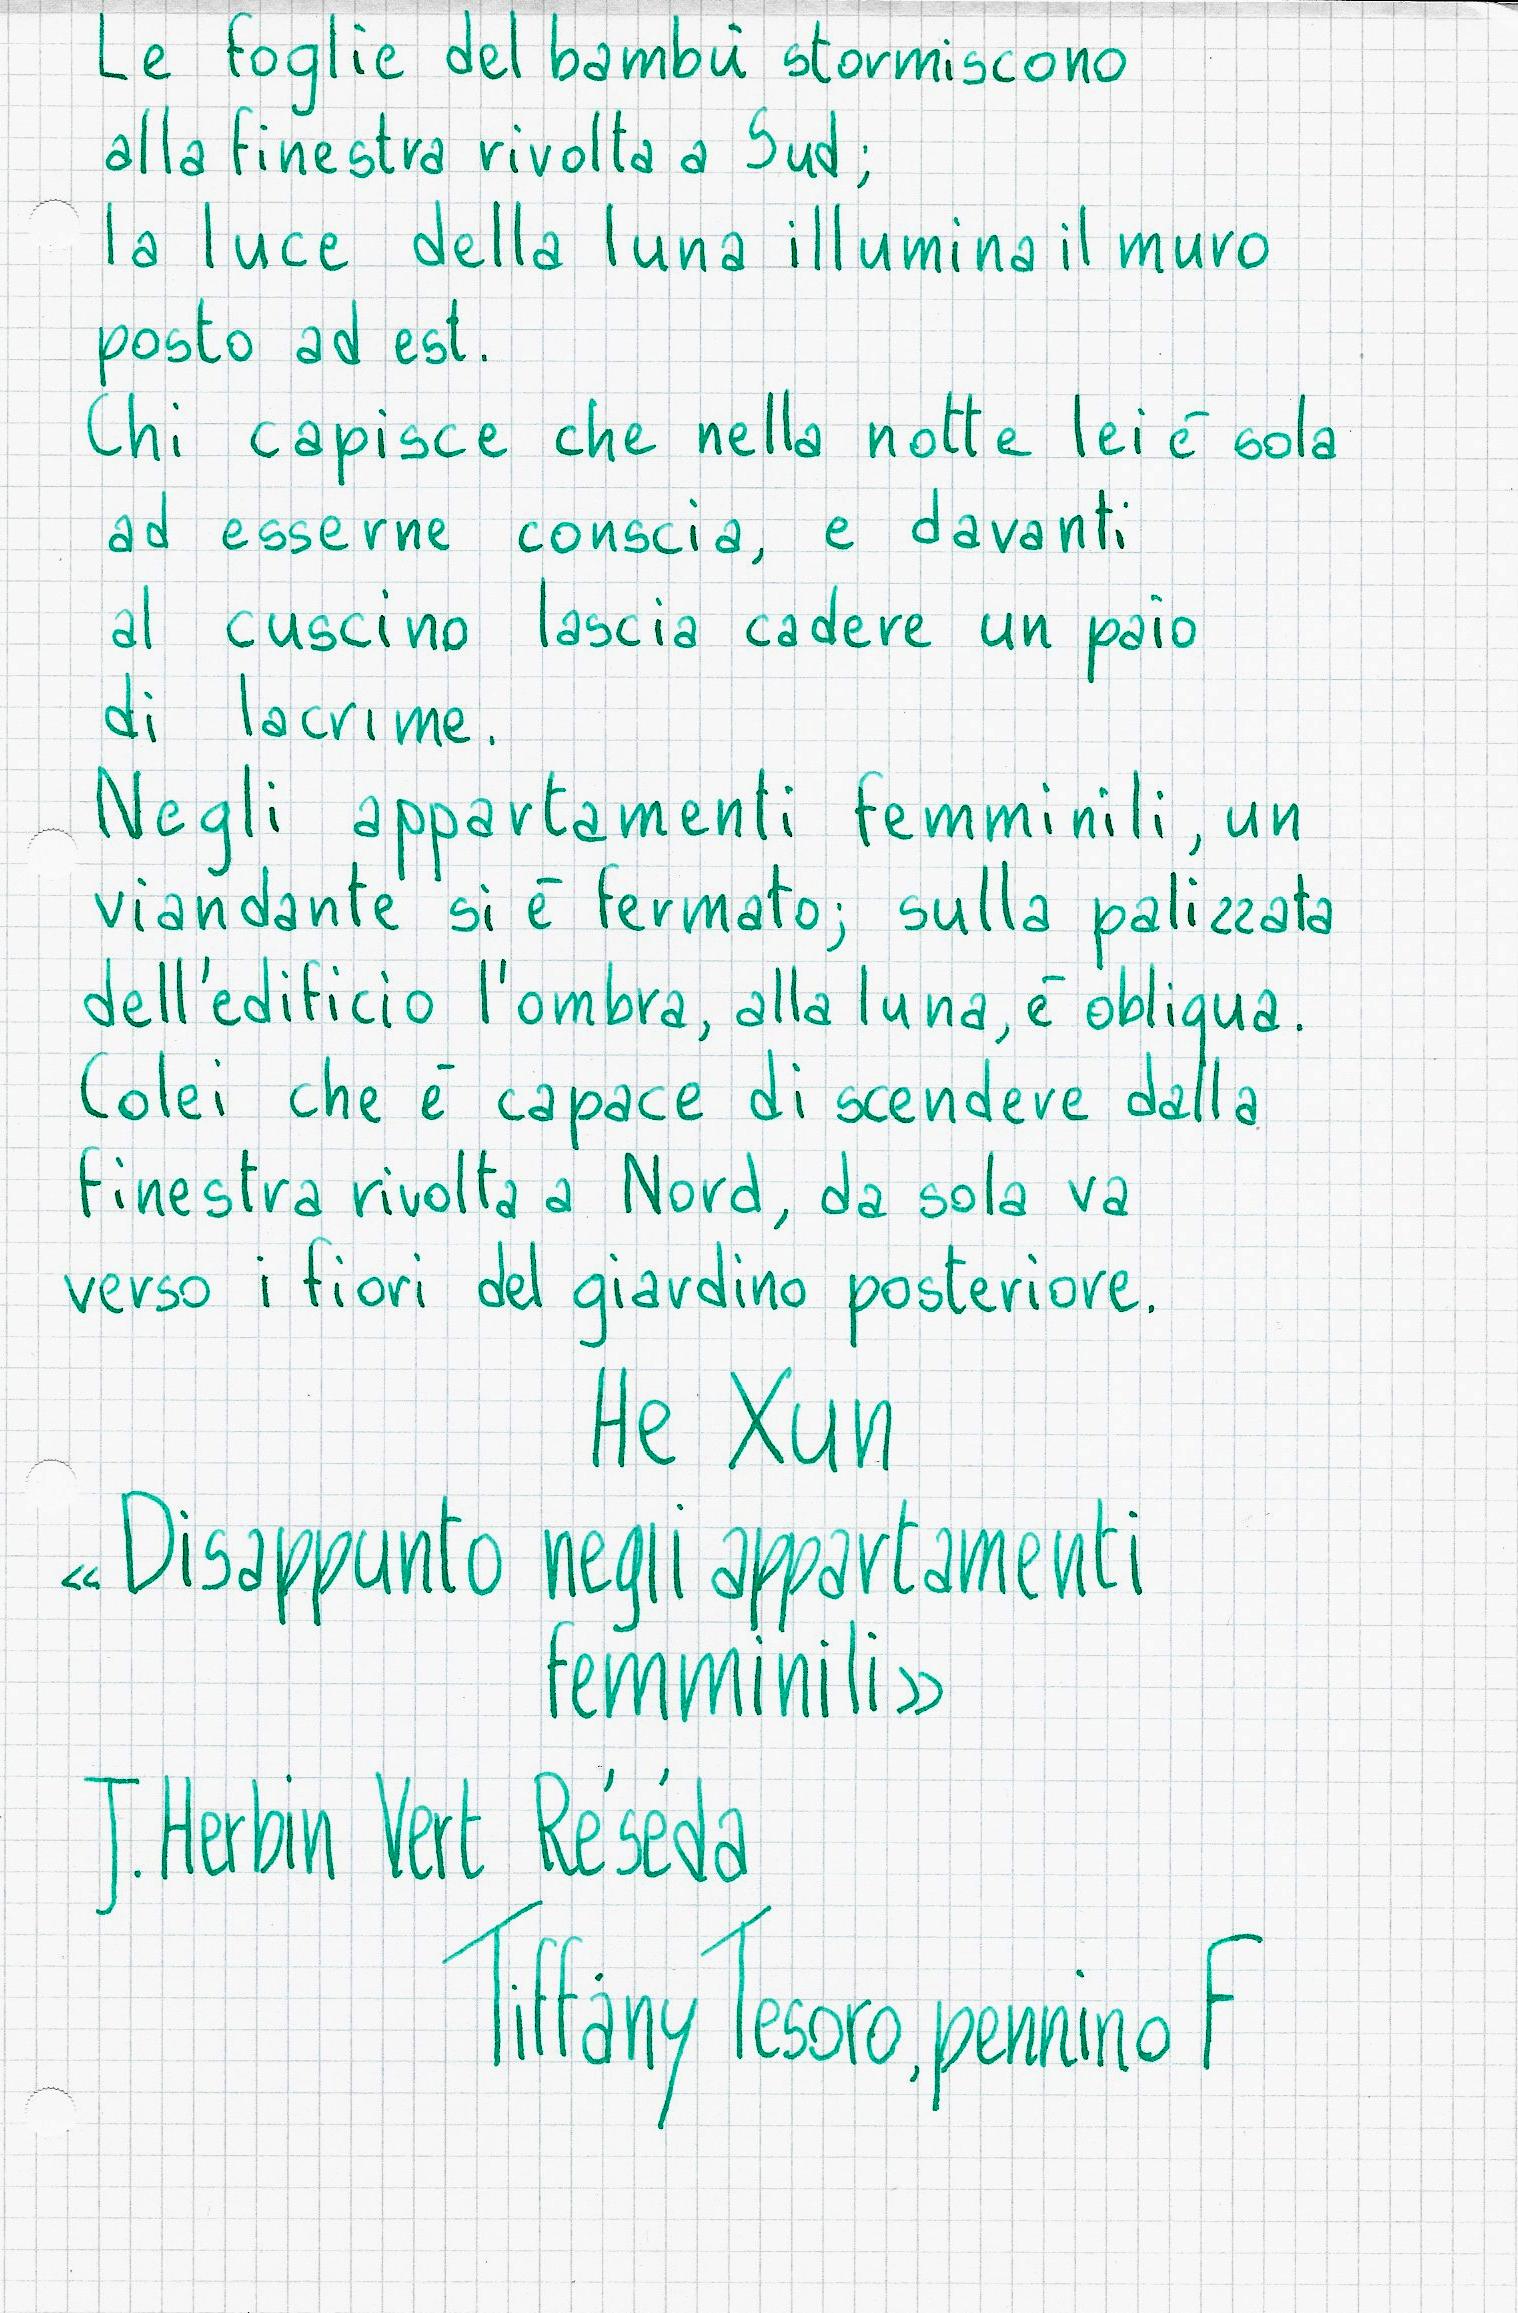 Le foglie del bambù stormiscono
alla finestra rivolta a Sud;
la luce della luna illumina il muro
posto ad est.
Chi capisce che nella notte lei è sola
ad esserne conscia, e davanti
al cuscino lascia cadere un paio
di lacrime.
Negli appartamenti femminili, un
viandante si è fermato; sulla palizzata
dell'edificio l'ombra, alla luna, è obliqua.
Colei che è capace di scendere dalla
finestra rivolta a Nord, da sola va
verso i fiori del giardino posteriore.
He Xun
«Disappunto negli appartamenti
femminili»
J. Herbin Vert Réséda
Tiffany Tesoro, pennino F